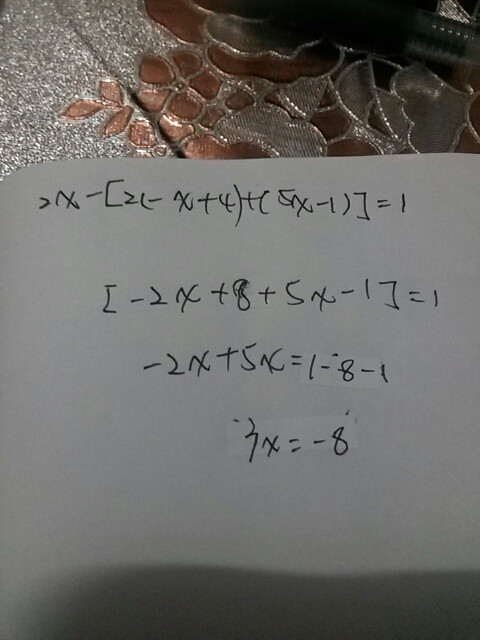 2x-[2(-x+4)+(5x-1)]=1
[-2x+8+5x-1]=1
-2x+5x=1-8-1
3x=-8